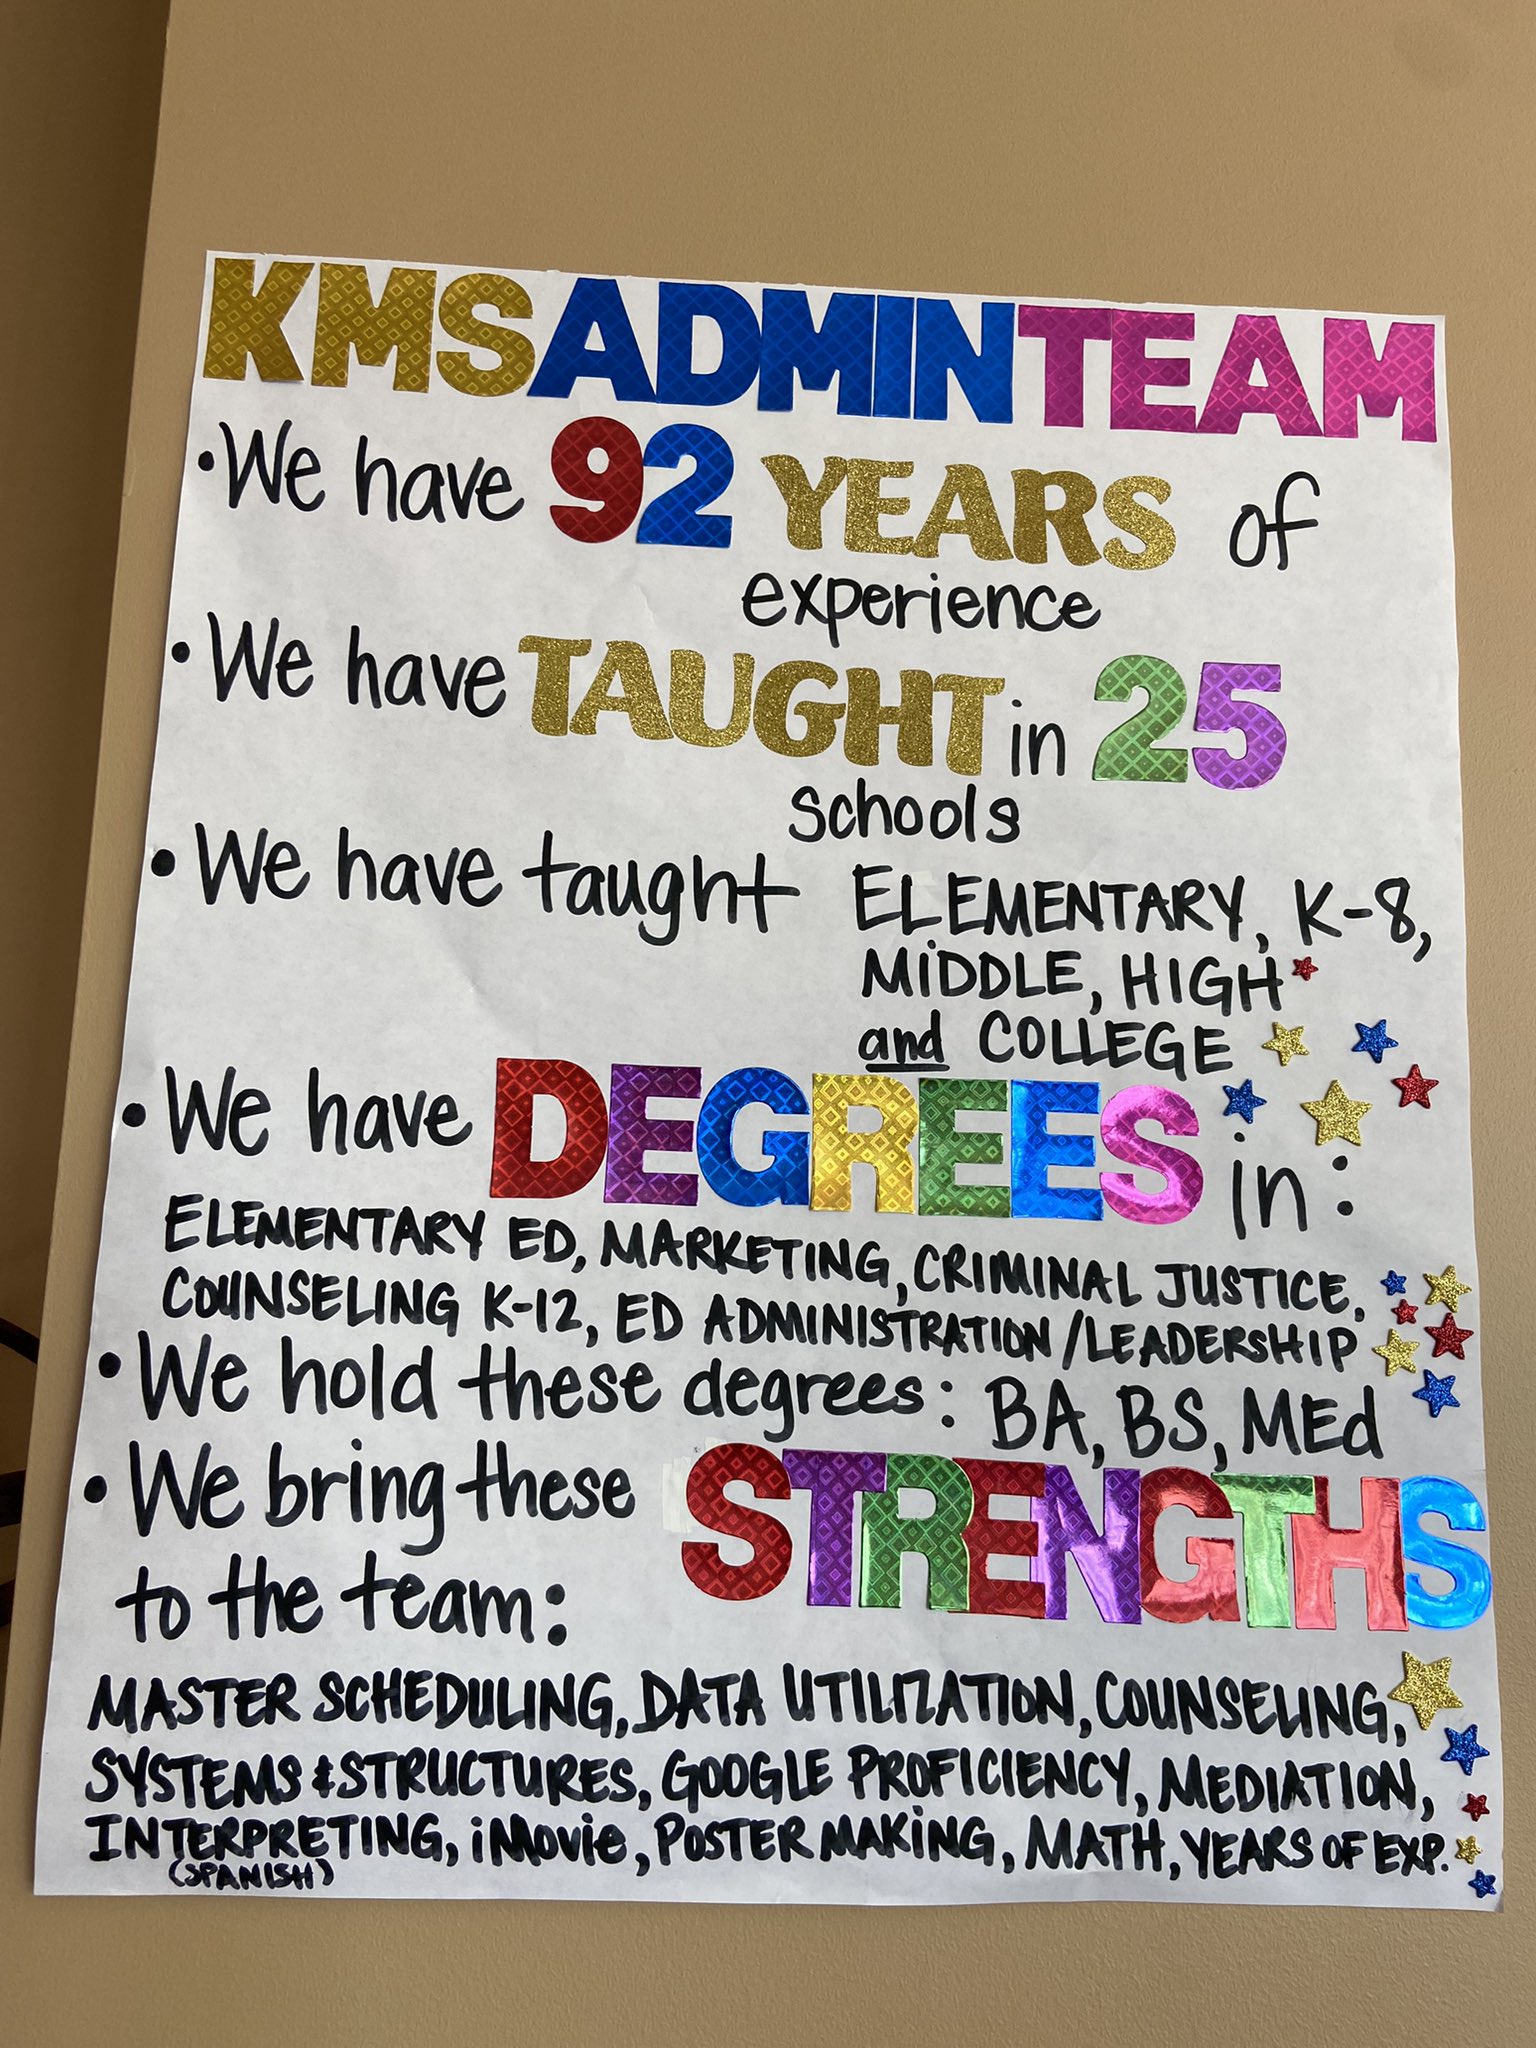 KMS ADMIN TEAM
• We have 92 YEARS of
experience
• We have TAUGHT in 25
schools
• We have taught ELEMENTARY, K-8,
MIDDLE, HIGH
and COLLEGE
• We have DEGREES in:
ELEMENTARY ED, MARKETING, CRIMINAL JUSTICE,
COUNSELING K-12, ED ADMINISTRATION/LEADERSHIP
• We hold these degrees: BA, BS, MEd
• We bring these STRENGTHS
to the team:
MASTER SCHEDULING, DATA UTILIZATION, COUNSELING,
SYSTEMS & STRUCTURES, GOOGLE PROFICIENCY, MEDIATION,
INTERPRETING, iMovie, POSTER MAKING, MATH, YEARS OF EXP.
(SPANISH)